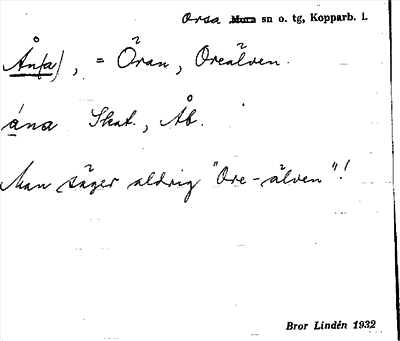 Orsa sn o. tg, Kopparb. l.
Ån(a), = Öran, Oreälven.
åna Skat., Åb.
Man säger aldrig "Ore-älven"!
Bror Lindén 1932